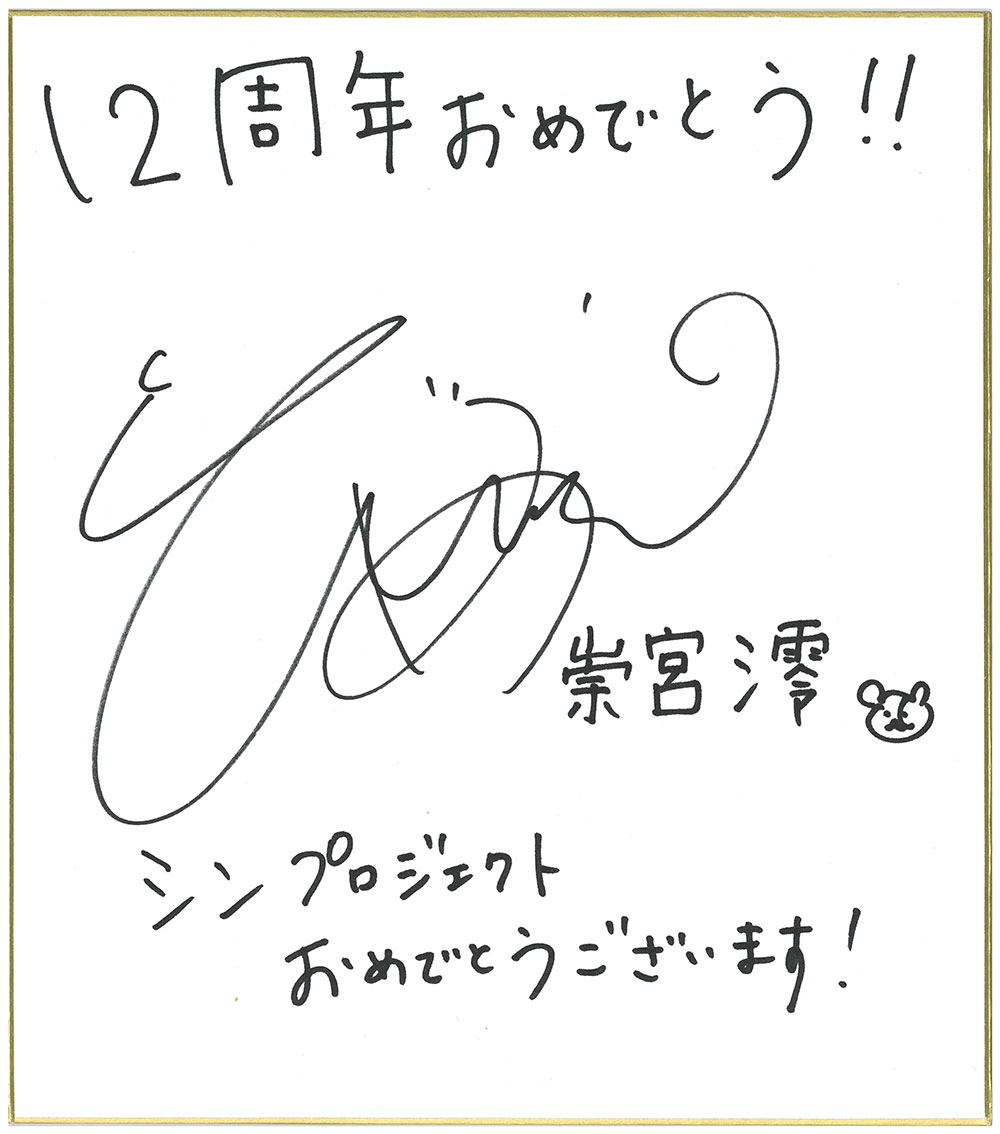 12周年おめでとう!!
崇宮澪
シンプロジェクト
おめでとうございます!